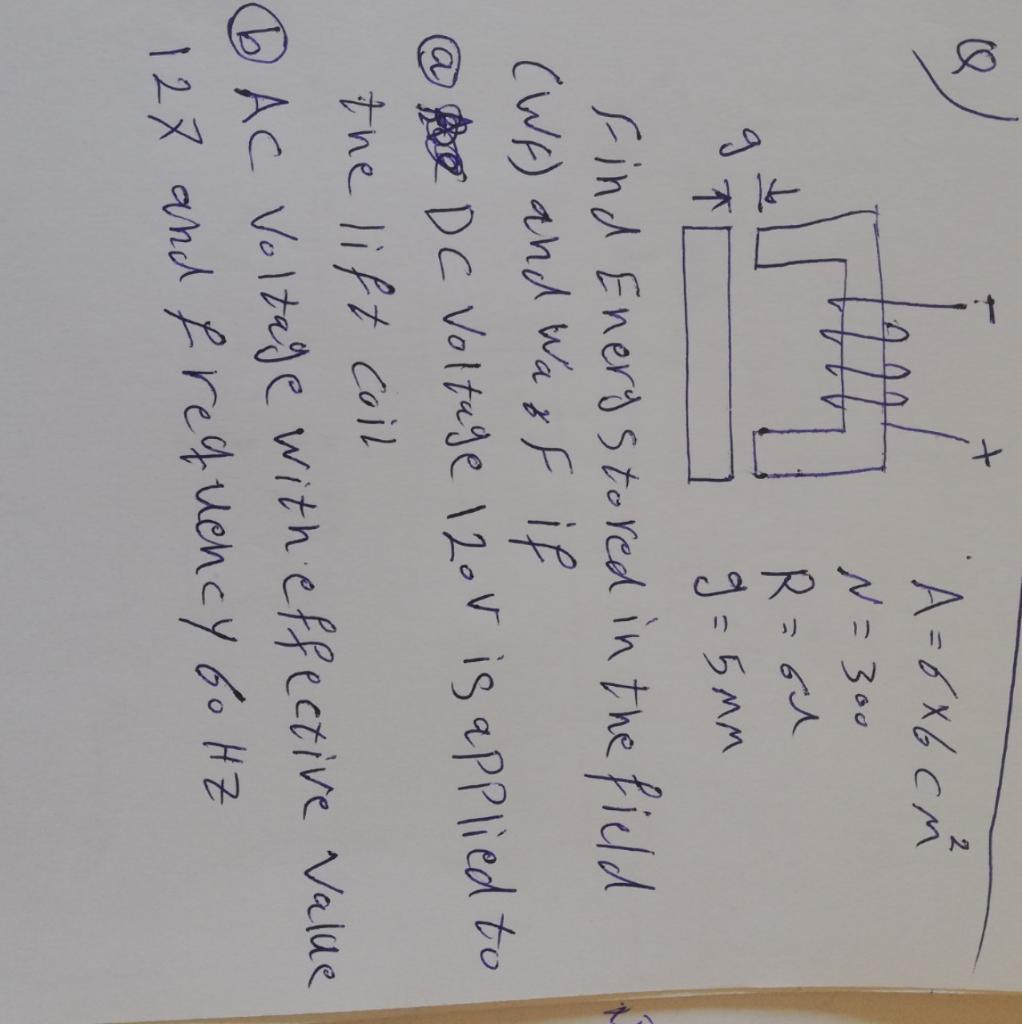 Q)
- +
g
A = 6 x 6 cm²
N = 300
R = 6Ω
g = 5 mm
Find Energy stored in the field
(WF) and if
a DC voltage 120V is applied to
the lift coil
b AC voltage with effective value
and frequency 60 HZ